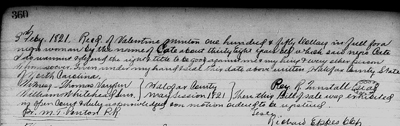 360
5th Feby. 1821. Recd. of Valentine Minton one hundred & fifty dollars in full for a
negro woman by the name of Cate about thirty eight years old which said negro Cate
I do warrant & defend the right & title to be good against me & my heirs & every other person
whomsoever. Given under my hand & seal this date above written, Halifax County & State
of North Carolina. Roy R. Tunstall Seal
Witness Thomas
William Halifax County
May Session 1821 Then this bill of sale was exhibited
in open Court & duly acknowledged & on motion ordered to be registered.
Test.
Richard Eppes Clk